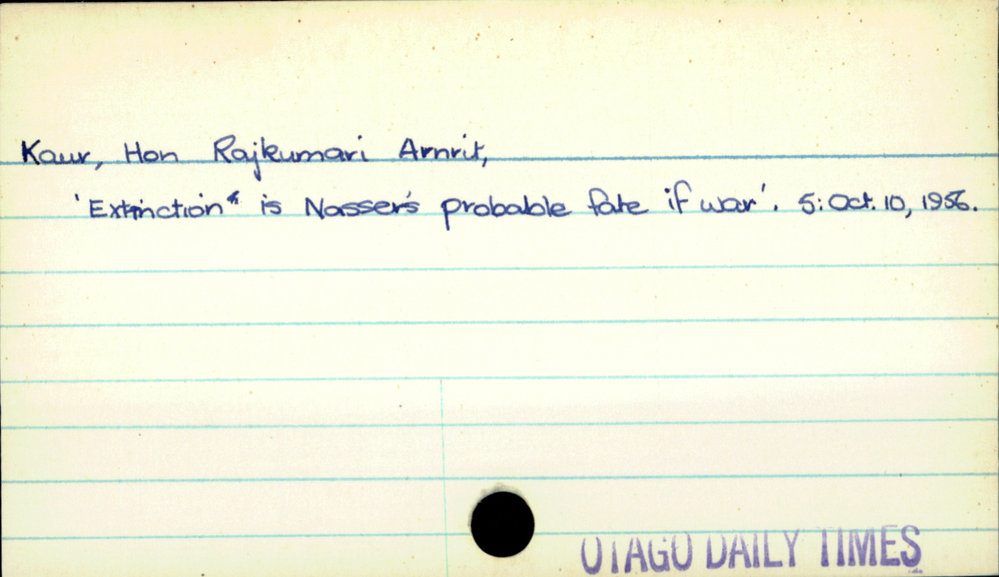 Kaur, Hon Rajkumari Amrit,
'Extinction' is Nasser's probable fate if war'. 5: Oct. 10, 1956.
OTAGO DAILY TIMES